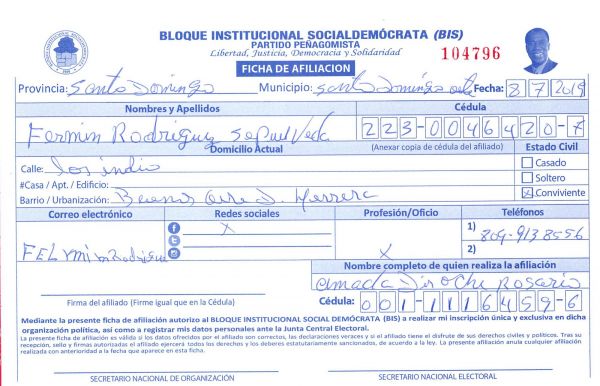 BLOQUE INSTITUCIONAL SOCIALDEMÓCRATA (BIS)
PARTIDO PEÑAGOMISTA
Libertad, Justicia, Democracia y Solidaridad
104796
FICHA DE AFILIACION
Provincia: Santo Domingo Municipio: Santo Domingo oeste Fecha: 8/7/2019
Nombres y Apellidos Cédula
Fermin Rodriguez Sepulveda 223-0046420-7
Domicilio Actual (Anexar copia de cédula del afiliado) Estado Civil
Calle: los indio Casado
#Casa / Apt. / Edificio: Soltero
Barrio / Urbanización: Buenos Aire D. Herrera X Conviviente
Correo electrónico Redes sociales Profesión/Oficio Teléfonos
X 1) 809-913 8556
FELYmin Rodrigue X 2)
Nombre completo de quien realiza la afiliación
Amada Rosario
Firma del afiliado (Firme igual que en la Cédula) Cédula: 001-1116459-6
Mediante la presente ficha de afiliación autorizo al BLOQUE INSTITUCIONAL SOCIAL DEMÓCRATA (BIS) a realizar mi inscripción única y exclusiva en dicha
organización política, así como a registrar mis datos personales ante la Junta Central Electoral.
La presente ficha de afiliación es válida si los datos ofrecidos por el afiliado son correctos, las declaraciones veraces y si el afiliado tiene el disfrute de sus derechos civiles y políticos. Tras su
recepción, sello y firmas autorizadas el afiliado ejercerá todos los derechos y los deberes estatutariamente sancionados, de acuerdo a la ley. La presente afiliación anula cualquier afiliación
realizada con anterioridad a la fecha que aparece en esta ficha.
SECRETARIO NACIONAL DE ORGANIZACIÓN SECRETARIO NACIONAL ELECTORAL